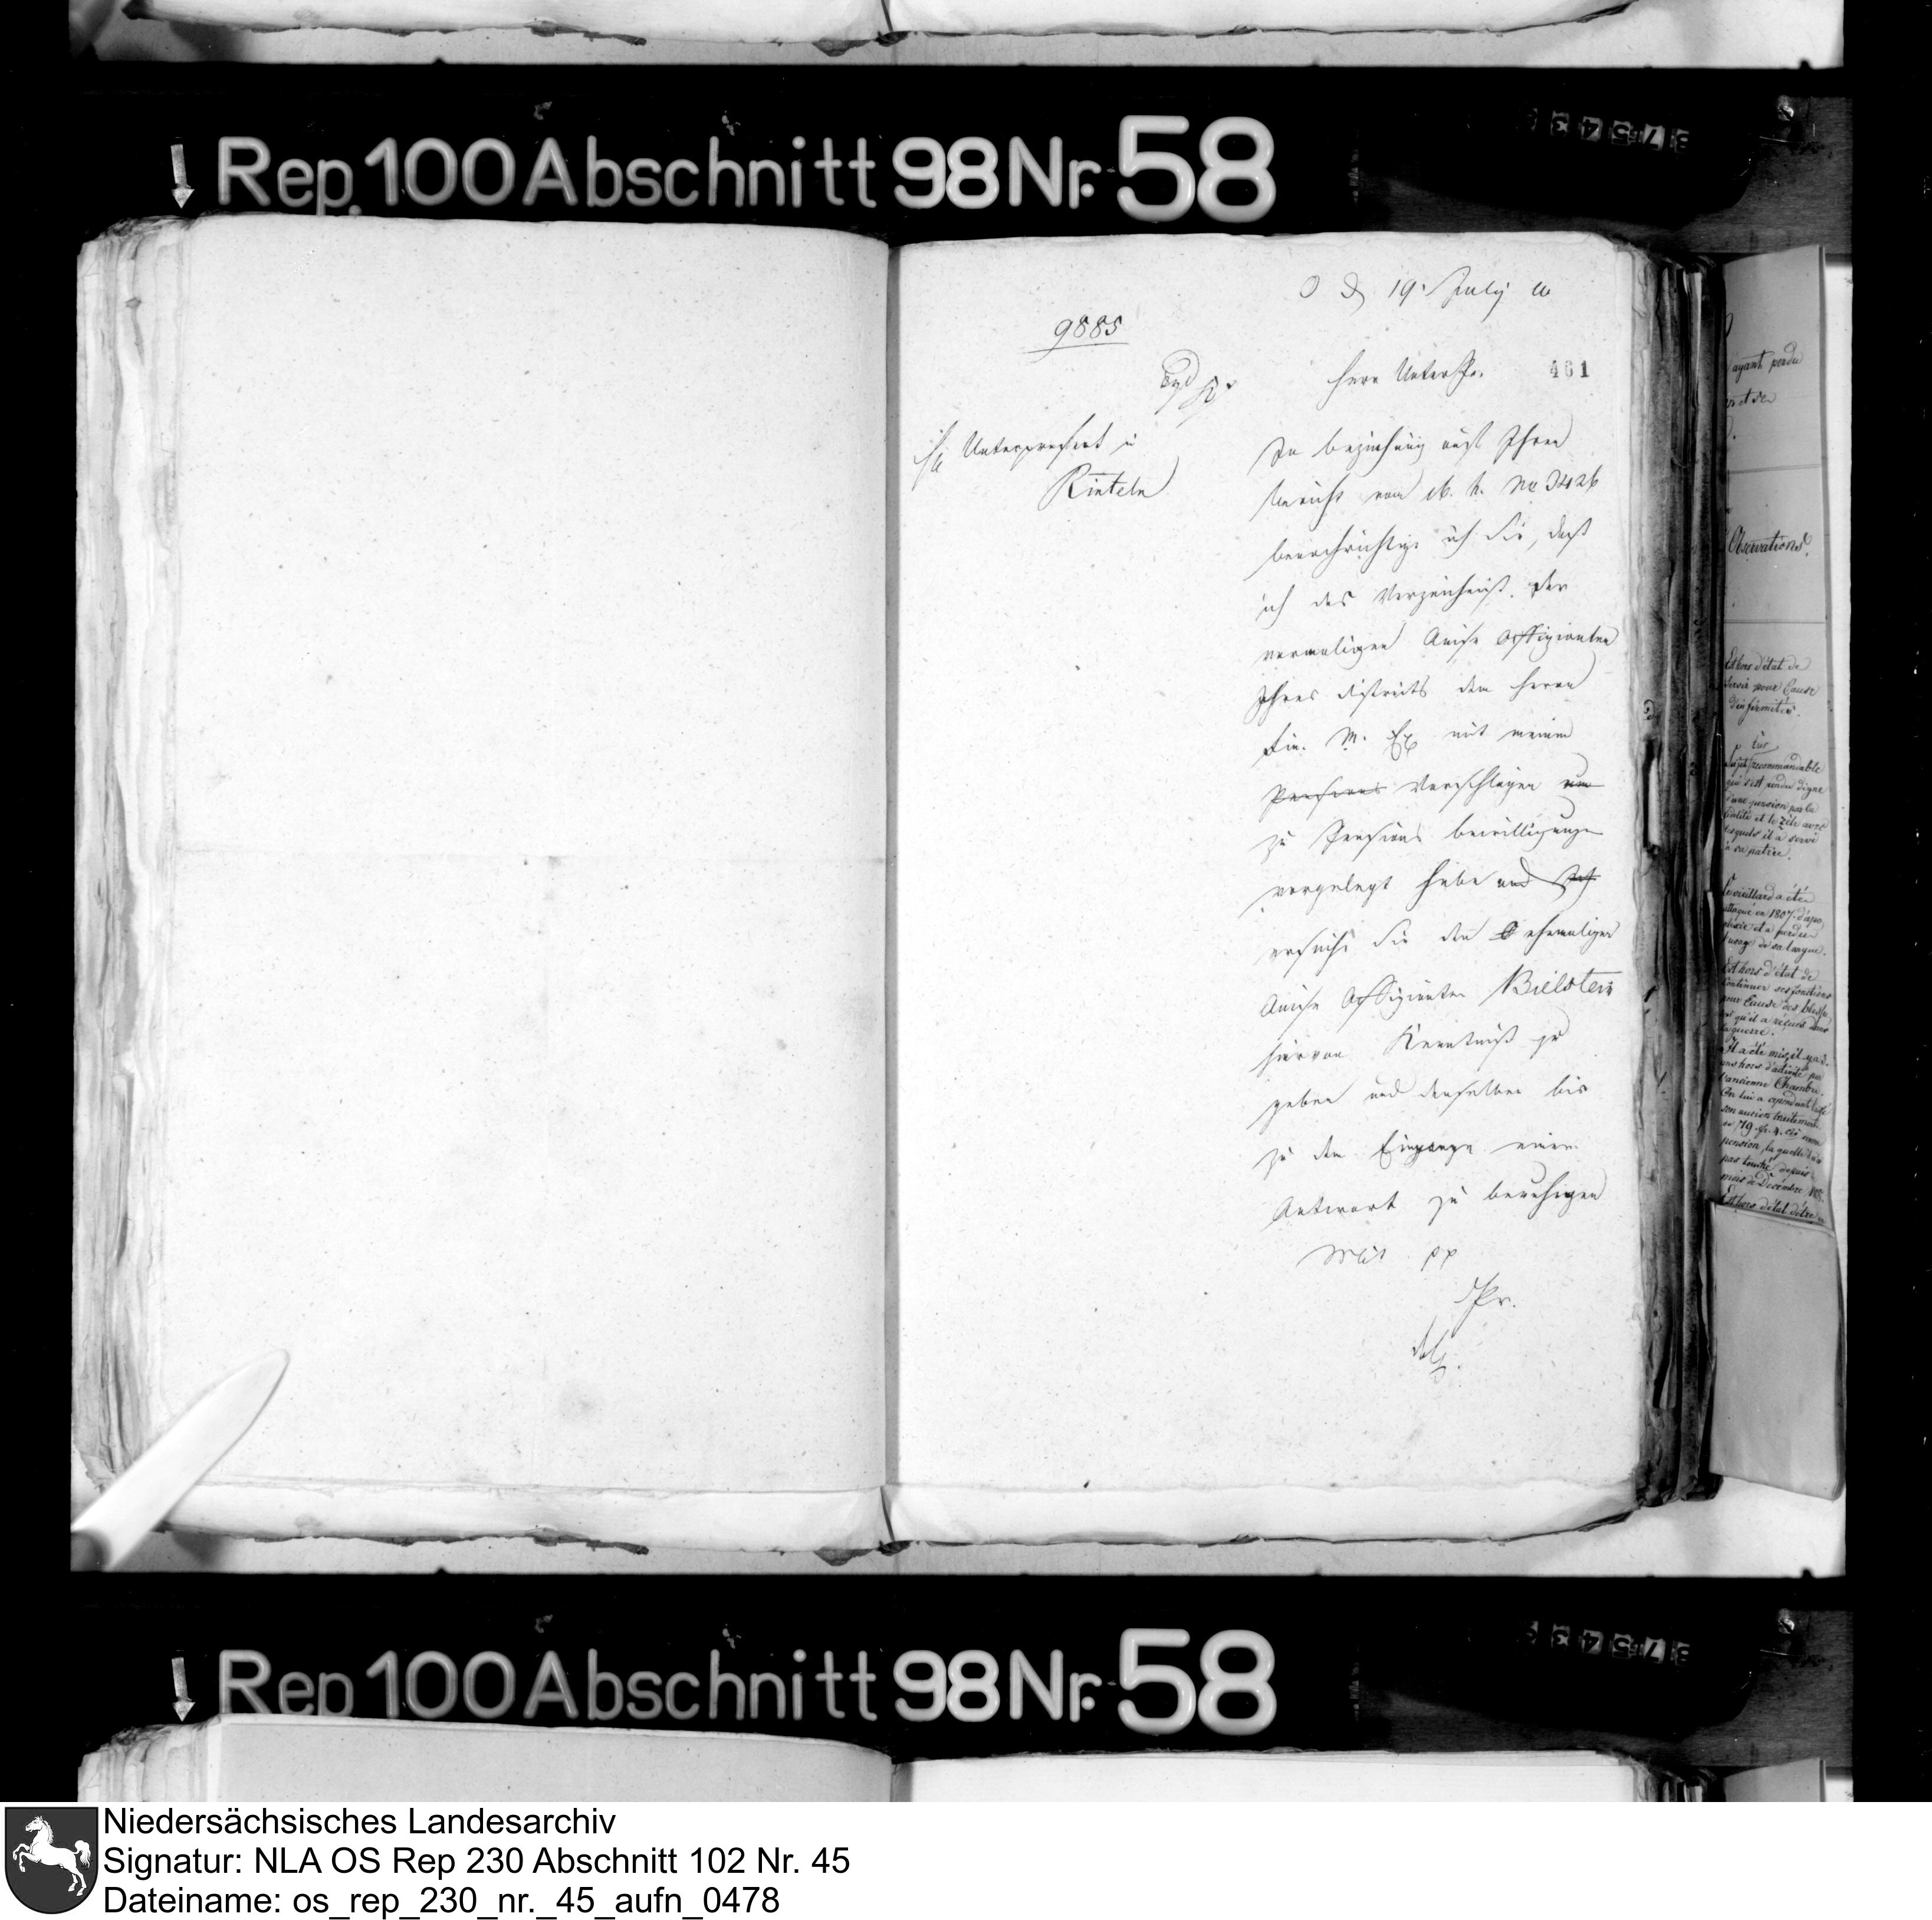 Rep. 100 Abschnitt 98 Nr. 58
O d 19. July
9885
Herr UnterPr.
461
Unterpraefect in
Rinteln
In beziehung auf Ihren
bericht vom d. M. No 3426
benachrichtige ich Sie, daß
ich das Verzeichniß der
vormaligen Accise Offizianten
Ihres districts dem Herrn
Fin. M. Ex mit meinen
Pensions Vorschlägen um
zu Pensions bewilligungen
vorgelegt habe und
ersuche Sie den ehemaligen
Accise Offizianten Bielstein
hiervon Kenntniß zu
geben und denselben bis
zu dem Eingange einer
Antwort zu beruhigen
Mit pp
dPr.
ayant perdu
Observations.
Est hors d'état de
servir pour Cause
d'infirmités.
Sujet recommandable
qui s'est rendu digne
d'une pension par la
fidélité et le zèle avec
lesquels il a servi
à sa patrie.
Ce vieillard a été
attaqué en 1807 d'apo-
plexie et a perdu
l'usage de sa langue.
Est hors d'état de
continuer ses fonctions
pour Cause des blessu-
res qu'il a reçues dans
la guerre.
Il a été mis, il y a
ans hors d'activité par
l'ancienne Chambre.
On lui a cependant
son ancien traitement
pension, laquelle
pas touché depuis
mois de Décembre
Est hors d'état d'être
Rep 100 Abschnitt 98 Nr. 58
Niedersächsisches Landesarchiv
Signatur: NLA OS Rep 230 Abschnitt 102 Nr. 45
Dateiname: os_rep_230_nr._45_aufn_0478